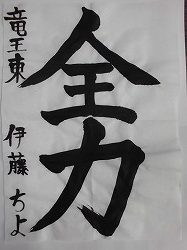 全力
竜王東 伊藤ちよ